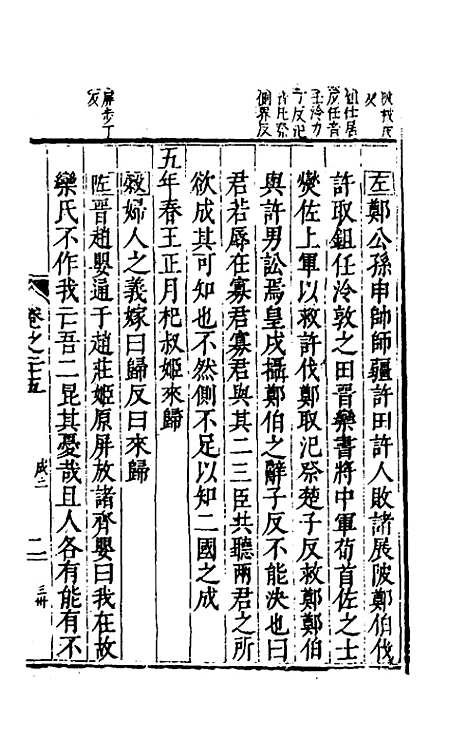 左鄭公孫申帥師疆許田許人敗諸展陂鄭伯伐
許取鉏任泠敦之田晉欒書將中軍荀首佐之士
燮佐上軍以救許伐鄭取汜祭楚子反救鄭鄭伯
與許男訟焉皇戌攝鄭伯之辭子反不能決也曰
君若辱在寡君寡君與其二三臣共聽兩君之所
欲成其可知也不然側不足以知二國之成
五年春王正月杞叔姬來歸
穀婦人之義嫁曰歸反曰來歸
左晉趙嬰通于趙莊姬原屏放諸齊嬰曰我在故
欒氏不作我亡吾二昆其憂哉且人各有能有不
卷之二十五
成二
二
三卅